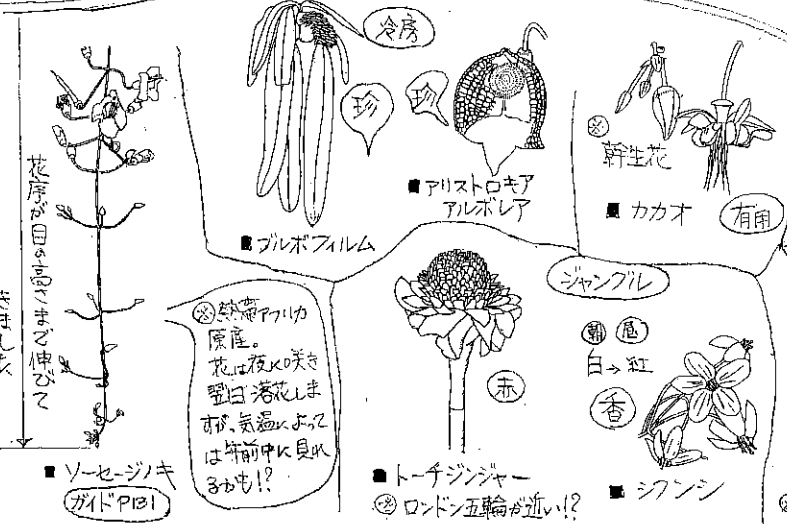 花序が目の高さまで伸びて
きました。
■ ソーセージノキ
ガイドP131
※熱帯アフリカ
原産。
花は夜に咲き
翌日落花しま
すが、気温によって
は午前中に見れ
るかも!?
冷房
珍
■ ブルボフィルム
珍
■ アリストロキア
アルボレア
※
幹生花
■ カカオ
有用
ジャングル
赤
■ トーチジンジャー
※ ロンドン五輪が近い!?
朝 昼
白→紅
香
■ シクンシ